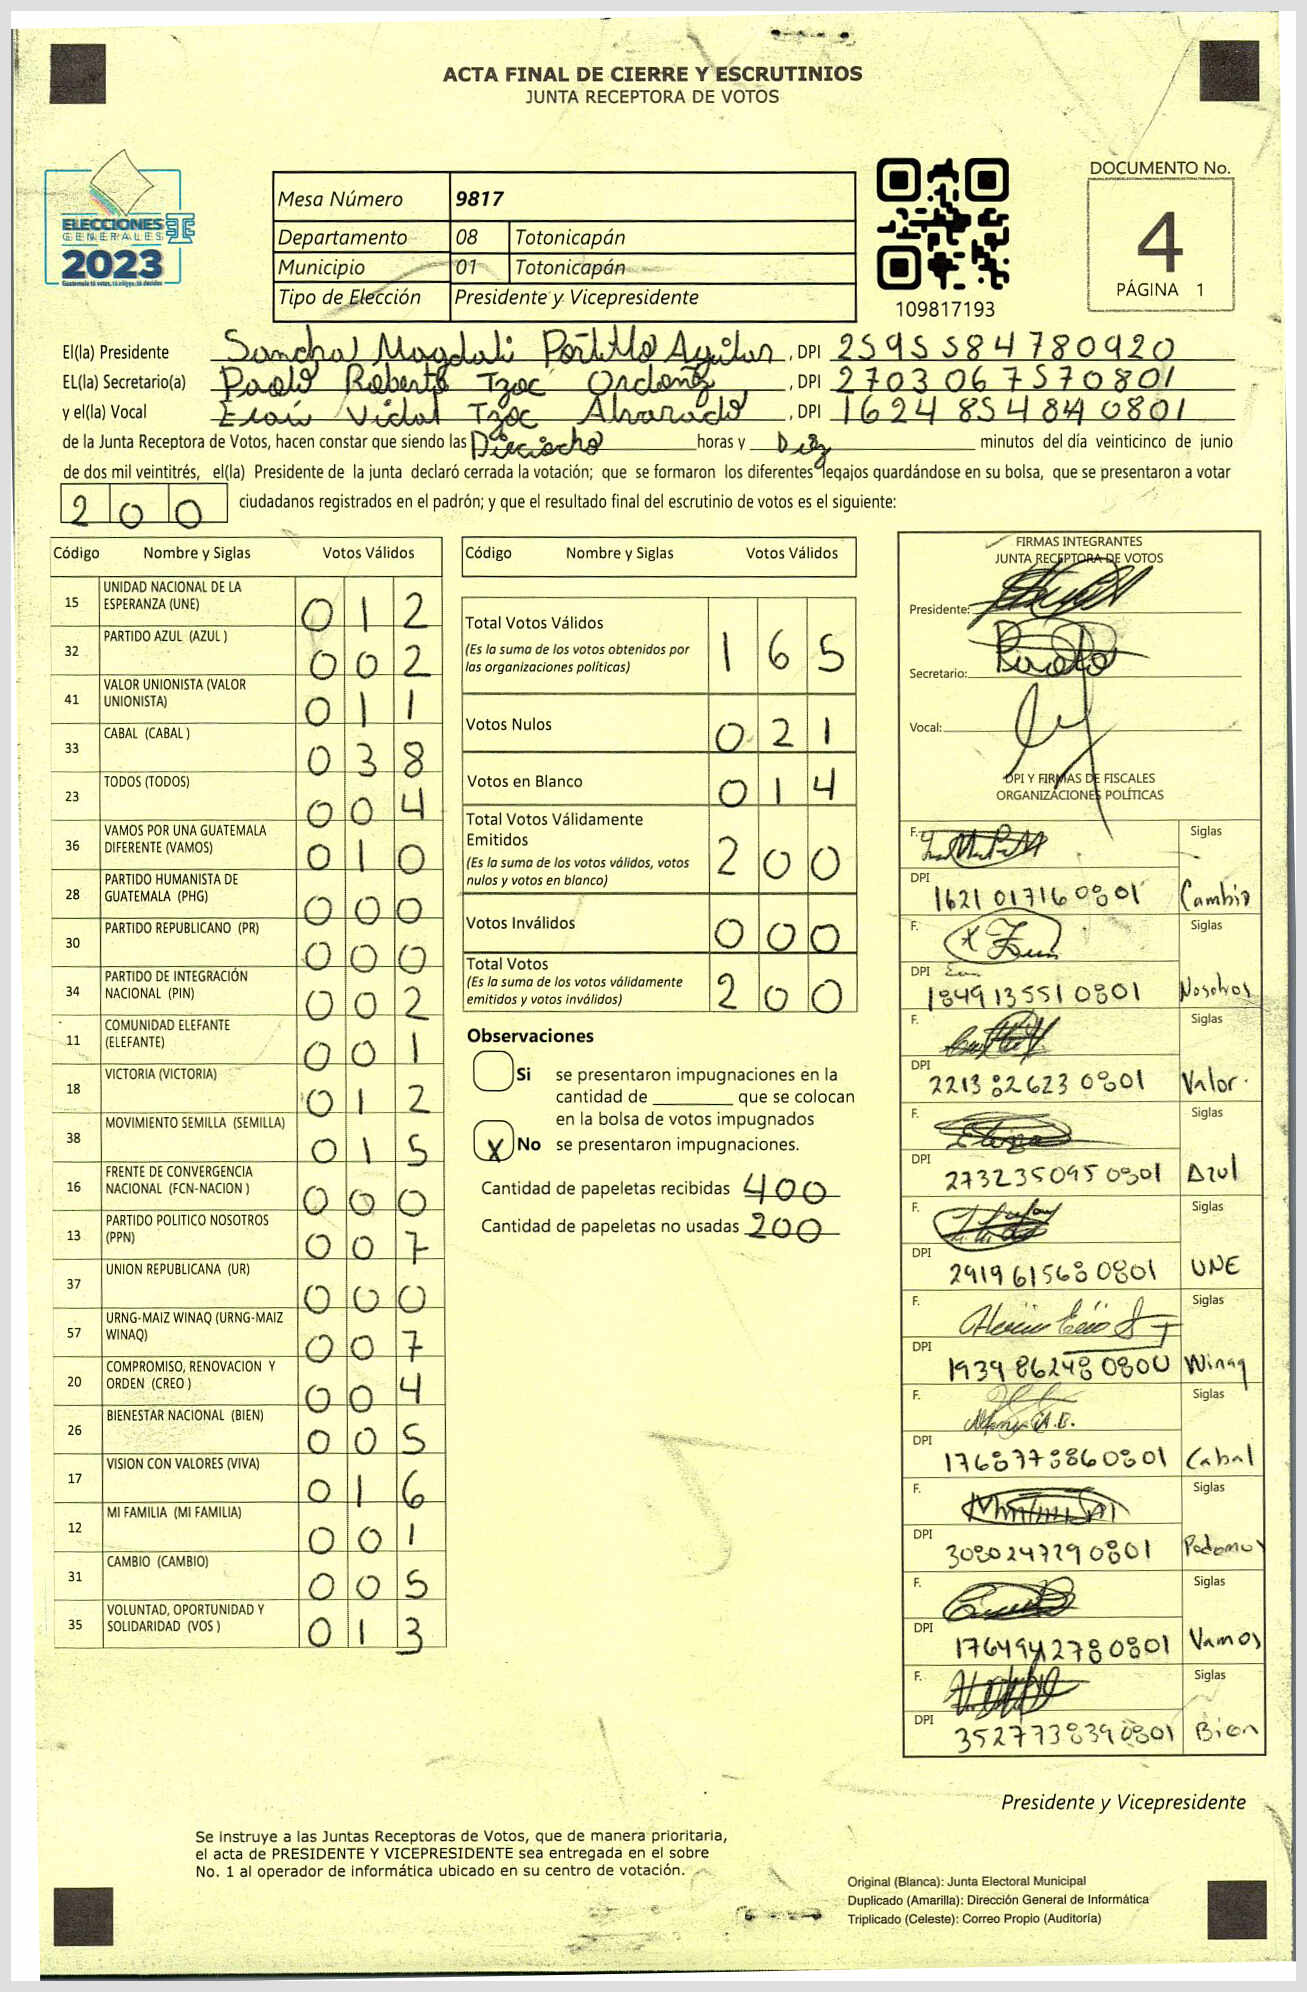 ACTA FINAL DE CIERRE Y ESCRUTINIOS
JUNTA RECEPTORA DE VOTOS
ELECCIONES
GENERALES
2023
Guatemala tú votas, tú eliges, tú decides
Mesa Número 9817
Departamento 08 Totonicapán
Municipio 01 Totonicapán
Tipo de Elección Presidente y Vicepresidente
109817193
DOCUMENTO No.
4
PÁGINA 1
El(la) Presidente Sandra Magdali Portillo Aguilar, DPI 2595584780920
EL(la) Secretario(a) Paolo Roberto Tzoc Ordoñez, DPI 2703067570801
y el(la) Vocal Esaú Vidal Tzoc Alvarado, DPI 1624854840801
de la Junta Receptora de Votos, hacen constar que siendo las Dieciocho horas y Diez minutos del día veinticinco de junio
de dos mil veintitrés, el(la) Presidente de la junta declaró cerrada la votación; que se formaron los diferentes legajos guardándose en su bolsa, que se presentaron a votar
200 ciudadanos registrados en el padrón; y que el resultado final del escrutinio de votos es el siguiente:
Código Nombre y Siglas Votos Válidos
15 UNIDAD NACIONAL DE LA ESPERANZA (UNE) 012
32 PARTIDO AZUL (AZUL ) 002
41 VALOR UNIONISTA (VALOR UNIONISTA) 011
33 CABAL (CABAL ) 038
23 TODOS (TODOS) 004
36 VAMOS POR UNA GUATEMALA DIFERENTE (VAMOS) 010
28 PARTIDO HUMANISTA DE GUATEMALA (PHG) 000
30 PARTIDO REPUBLICANO (PR) 000
34 PARTIDO DE INTEGRACIÓN NACIONAL (PIN) 002
11 COMUNIDAD ELEFANTE (ELEFANTE) 001
18 VICTORIA (VICTORIA) 012
38 MOVIMIENTO SEMILLA (SEMILLA) 015
16 FRENTE DE CONVERGENCIA NACIONAL (FCN-NACION ) 000
13 PARTIDO POLITICO NOSOTROS (PPN) 007
37 UNION REPUBLICANA (UR) 000
57 URNG-MAIZ WINAQ (URNG-MAIZ WINAQ) 007
20 COMPROMISO, RENOVACION Y ORDEN (CREO ) 004
26 BIENESTAR NACIONAL (BIEN) 005
17 VISION CON VALORES (VIVA) 016
12 MI FAMILIA (MI FAMILIA) 001
31 CAMBIO (CAMBIO) 005
35 VOLUNTAD, OPORTUNIDAD Y SOLIDARIDAD (VOS ) 013
Código Nombre y Siglas Votos Válidos
Total Votos Válidos 165
(Es la suma de los votos obtenidos por
las organizaciones políticas)
Votos Nulos 021
Votos en Blanco 014
Total Votos Válidamente
Emitidos 200
(Es la suma de los votos válidos, votos
nulos y votos en blanco)
Votos Inválidos 000
Total Votos 200
(Es la suma de los votos válidamente
emitidos y votos inválidos)
Observaciones
Si se presentaron impugnaciones en la
cantidad de ________ que se colocan
en la bolsa de votos impugnados
X No se presentaron impugnaciones.
Cantidad de papeletas recibidas 400
Cantidad de papeletas no usadas 200
FIRMAS INTEGRANTES
JUNTA RECEPTORA DE VOTOS
Presidente:
Secretario:
Vocal:
DPI Y FIRMAS DE FISCALES
ORGANIZACIONES POLÍTICAS
F. Siglas
DPI 1621017160801 Cambio
F. Siglas
DPI 1849135510801 Nosotros
F. Siglas
DPI 2213826230801 Valor.
F. Siglas
DPI 2732350950801 Azul
F. Siglas
DPI 2919615680801 UNE
F. Siglas
DPI Winaq
F. Siglas
DPI 1768778860801 Cabal
F. Siglas
DPI 3080247290801 Podemos
F. Siglas
DPI 1764942780801 Vamos
F. Siglas
DPI 3527738390801 Bien
Presidente y Vicepresidente
Se instruye a las Juntas Receptoras de Votos, que de manera prioritaria,
el acta de PRESIDENTE Y VICEPRESIDENTE sea entregada en el sobre
No. 1 al operador de informática ubicado en su centro de votación.
Original (Blanca): Junta Electoral Municipal
Duplicado (Amarilla): Dirección General de Informática
Triplicado (Celeste): Correo Propio (Auditoría)